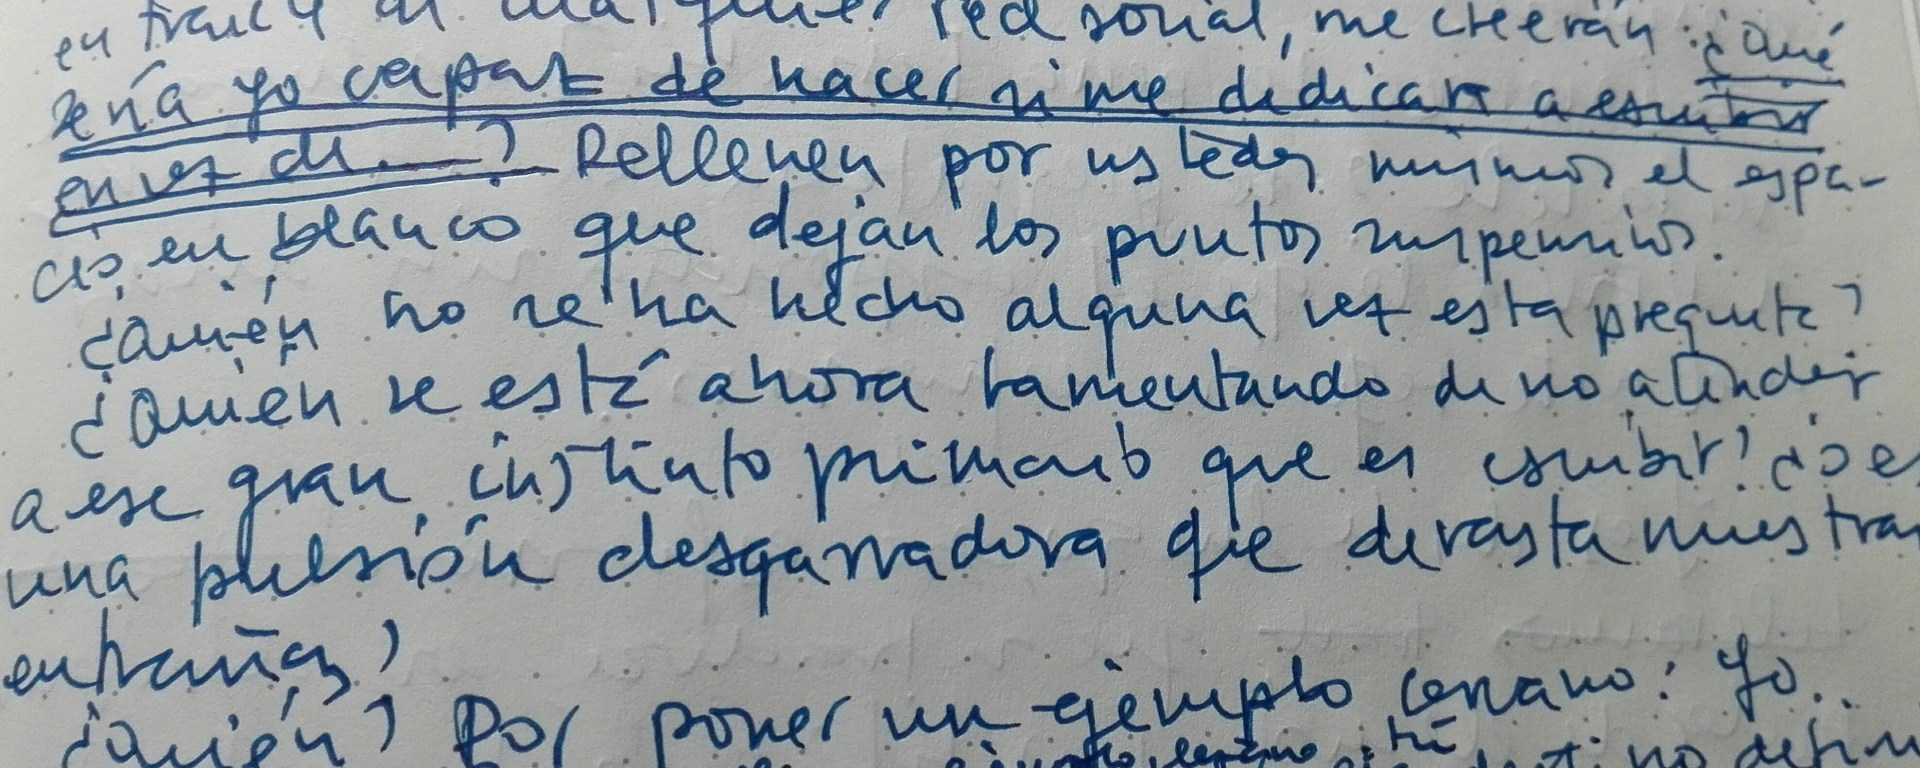 red social, me creerán: ¿Qué
sería yo capaz de hacer si me dedicara a escribir
en vez de.......? Rellenen por ustedes mismos el espa-
cio en blanco que dejan los puntos suspensivos.
¿Quién no se ha hecho alguna vez esta pregunta?
¿Quién se está ahora lamentando de no atender
a ese gran instinto primario que es escribir? ¿O es
una pulsión desgarradora que devasta nuestras
entrañas?
¿Quién? Por poner un ejemplo cercano: Yo..
no